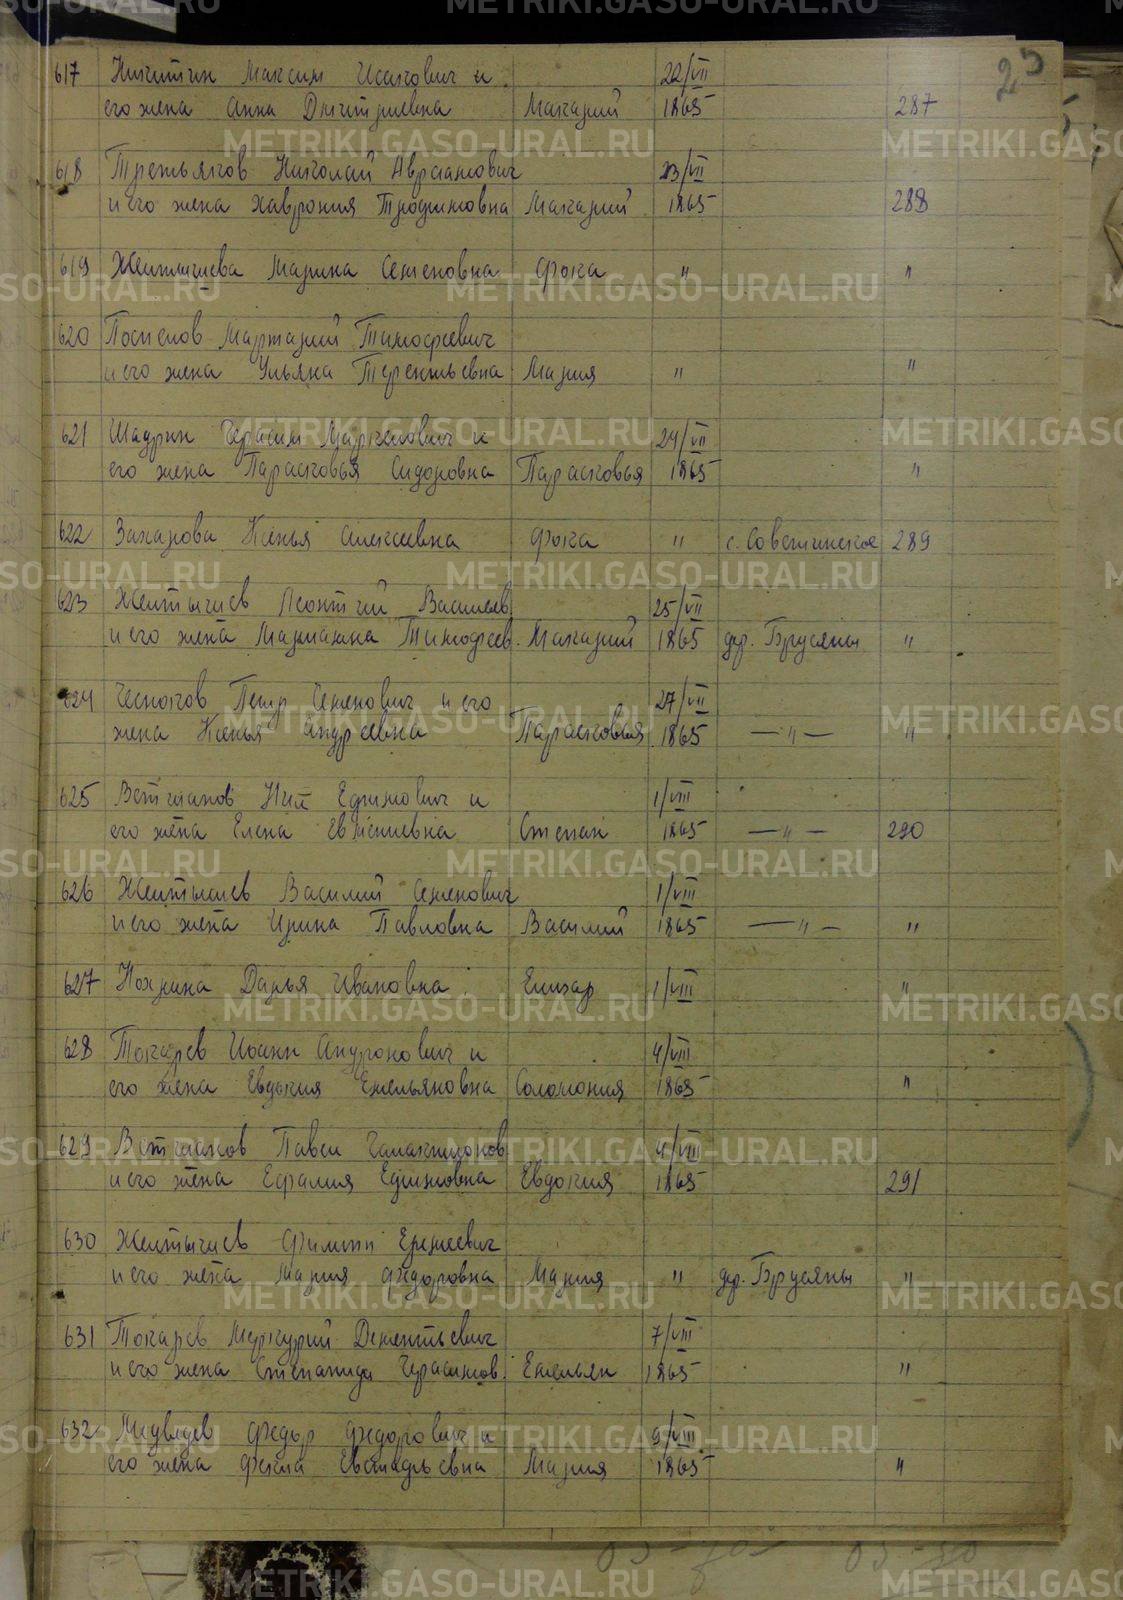 25
617 Никитин Максим Исакович и 22/VII
его жена Анна Дмитриевна Макарий 1865 287
618 Третьяков Николай Аврамович 23/VII
и его жена Хаврония Трофимовна Макарий 1865 288
619 Желтышева Марина Семеновна Фока " "
620 Поспелов Тимофеевич
и его жена Ульяна Терентьевна Мария " "
621 Шадрин Герасим Маркелович и 24/VII
его жена Парасковья Сидоровна Парасковья 1865 "
622 Захарова Ксенья Алексеевна Фока " с. 289
623 Желтышев Леонтий Васильев 25/VII
и его жена Марианна Тимофеев. Макарий 1865 др. Брусяны "
624 Чесноков Петр Семенович и его 27/VII
жена Ксенья Андреевна Парасковья 1865 — " — "
625 Ветшанов Нил Ефимович и 1/VIII
его жена Елена Евгениевна Степан 1865 — " — 290
626 Желтышев Василий Семенович 1/VIII
и его жена Ирина Павловна Василий 1865 — " — "
627 Кокрина Дарья Ивановна Елизар 1/VIII "
628 Токарев Иоанн Андронович и 4/VIII
его жена Евдокия Емельяновна Соломония 1865 "
629 Ветшанов Павел 4/VIII
и его жена Ефимовна Евдокия 1865 291
630 Желтышев Филипп Еремеевич
и его жена Мария Федоровна Мария " др. Брусяны "
631 Токарев Меркурий Дементьевич 7/VIII
и его жена Степанида Герасимов. Емельян 1865 "
632 Медведев Федор Федорович и 9/VIII
его жена Фекла Евстафьевна Мария 1865 "
METRIKI.GASO-URAL.RU